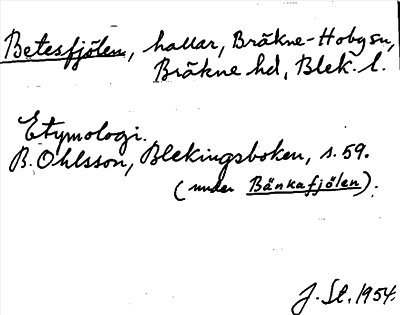 Betesfjölen, hallar, Bräkne-Hobysn,
Bräkne hd, Blek. l.
Etymologi.
B. Ohlsson, Blekingsboken, s. 59.
(under Bänkafjölen).
J. St. 1954.